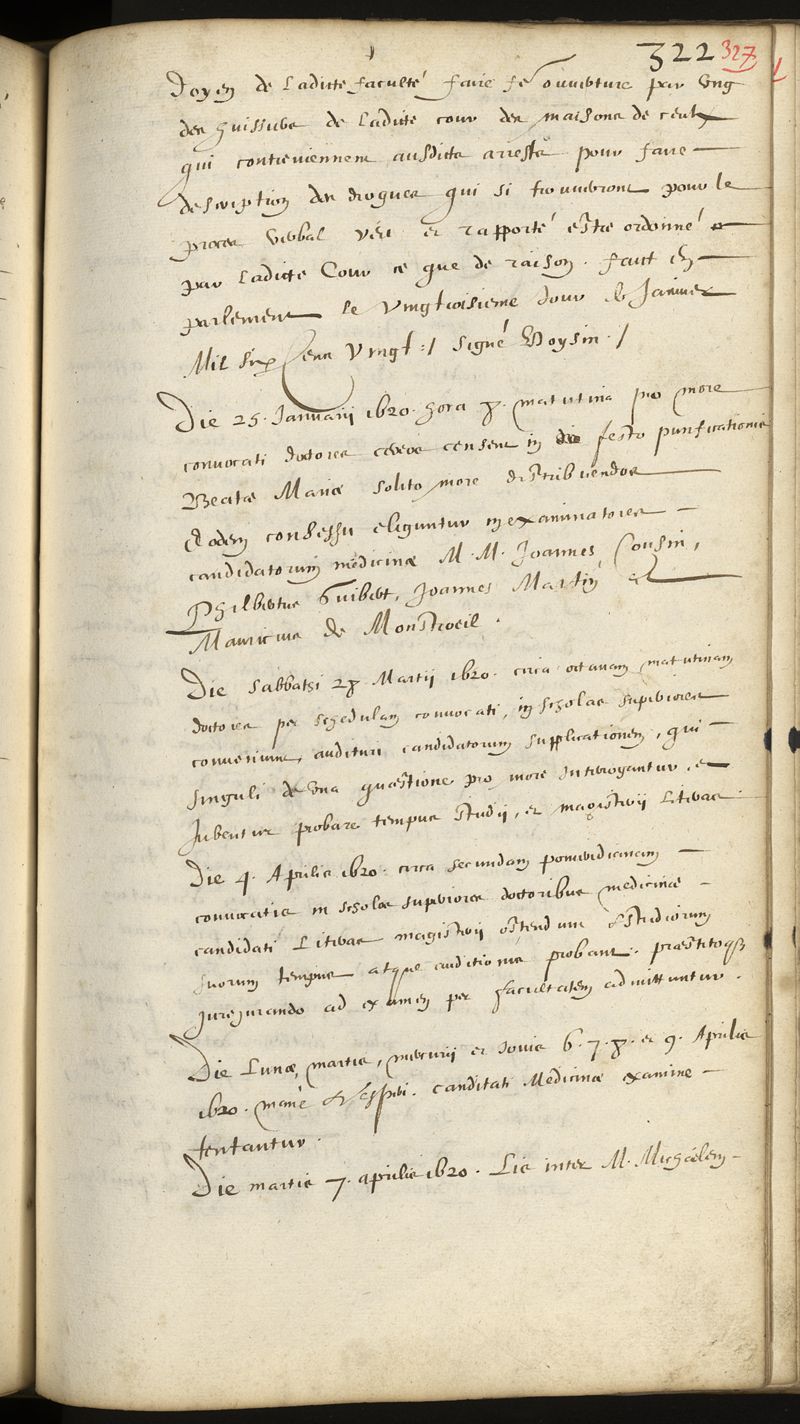 322 327
doyen de Ladicte faculté faire fe ouverture par ung
des huissiers de Ladicte cour des maisons de ceulx
qui contreviennent ausdicts arrestz pour faire
description des drogues qui si trouveront pour le
proces verbal veu et rapporté estre ordonné
par Ladicte Cour ce que de raison. faict en
parlement le Vingtroisieme Jour de Janvier
Mil six Cens Vingt :/ signé Voysin ./
Die 25. Januarij 1620. hora 8. matutina pro more
convocati doctores cereos censent in festo purificationis
Beatæ Mariæ solito more distribuendos
Eodem consessu eliguntur in examinatores
candidatorum medicinæ M. M. Joannes Cousin,
Philbertus Guibert, Joannes Martin et
Mauricius de Monstroeil.
Die Sabbathi 28 Martij 1620. circa octavam matutinam
doctores per schedulam convocati, in scholas superiores
conveniunt, audituri candidatorum supplicationem, qui
singuli de una quæstione pro more interrogantur, et
Jubentur probare tempus studij, et magisterij literas
Die 4. Aprilis 1620. circa secundam pomeridianam
convocatis in scholas superiores doctoribus medicinæ
candidati Literas magisterij ostendunt & studiorum
suorum tempus atque auditionis probant. præstitoq3
jurejurando ad examen per facultatem admittuntur.
Die Lunæ, martis, mercurij et Jovis 6. 7. 8. et 9. Aprilis
1620. manè & vesperi. canditati Medicinæ examine
tentantur.
Die martis 7. aprilis 1620. Lis inter M. Michaelem